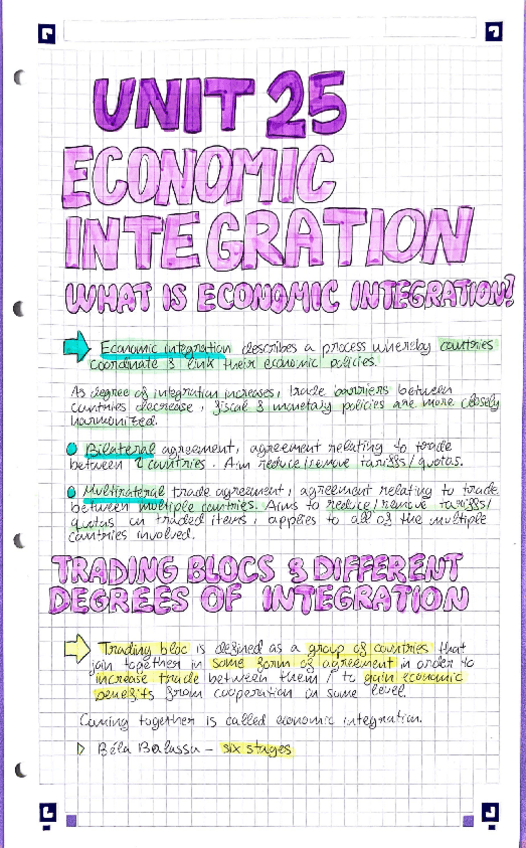 UNIT 25
ECONOMIC
INTEGRATION
WHAT IS ECONOMIC INTEGRATION?
Economic integration describes a process whereby countries
coordinate & link their economic policies.
As degree of integration increases, trade barriers between
countries decrease, fiscal & monetary policies are more closely
harmonized.
Bilateral agreement, agreement relating to trade
between 2 countries. Aim reduce/remove tariffs/quotas.
Multirateral trade agreement, agreement relating to trade
between multiple countries. Aims to reduce/remove tariffs/
quotas on traded items, applies to all of the multiple
countries involved.
TRADING BLOCS & DIFFERENT
DEGREES OF INTEGRATION
Trading bloc is defined as a group of countries that
join together in some form of agreement in order to
increase trade between them / to gain economic
benefits from cooperation on some level.
Coming together is called economic integration.
Béla Balassa – six stages